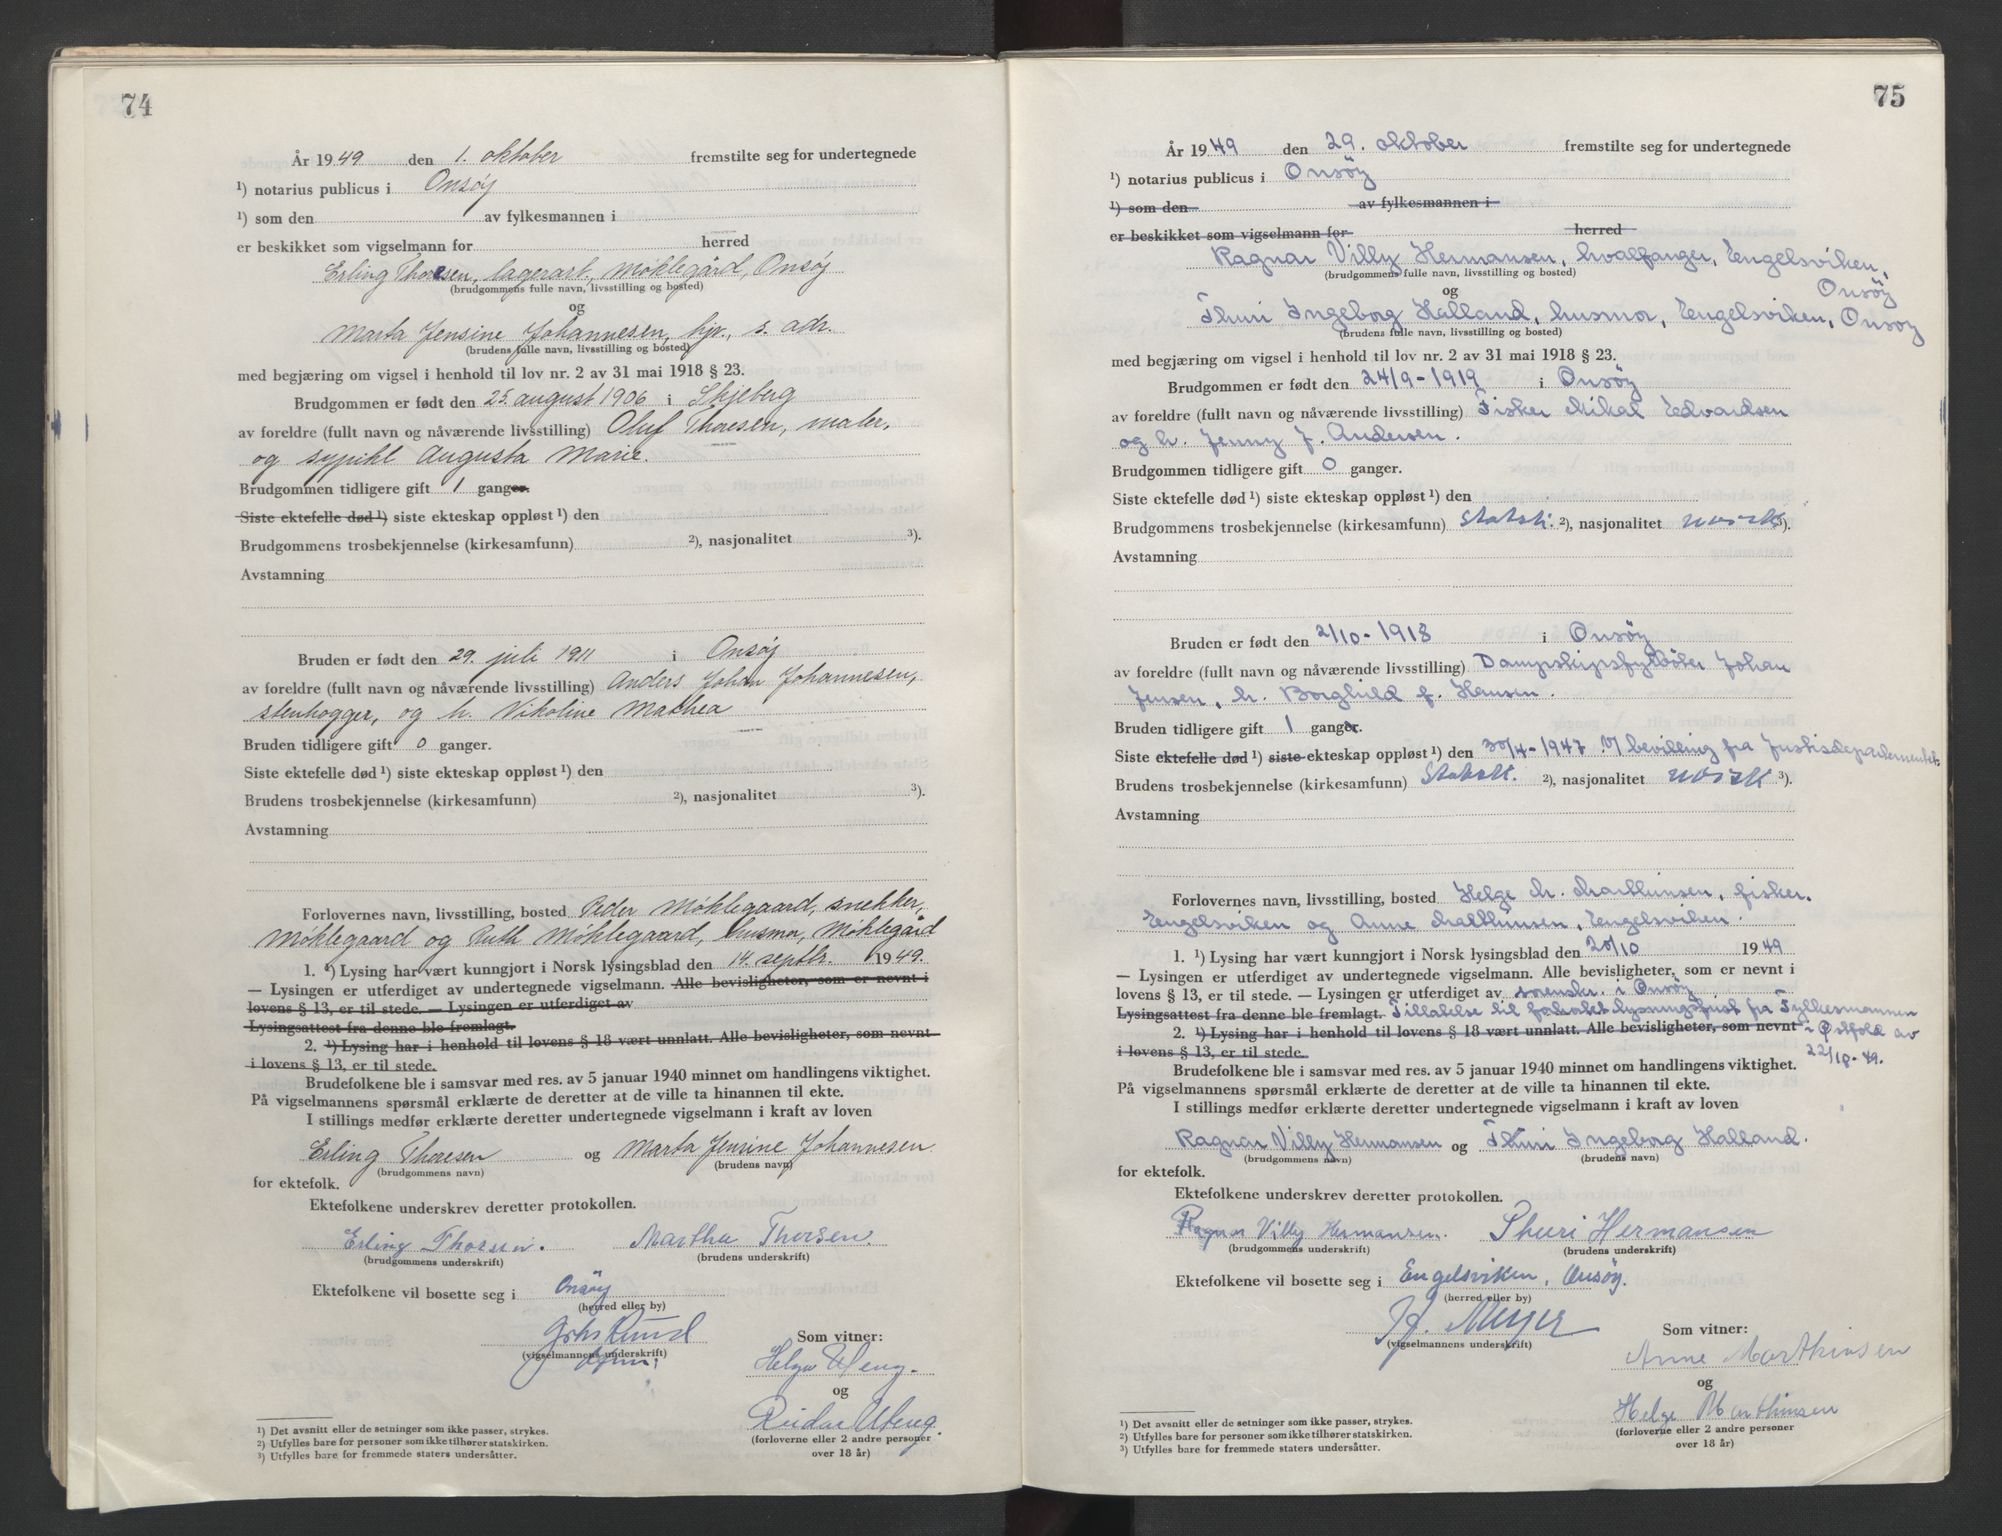 74
År 1949 den 1. oktober fremstilte seg for undertegnede
¹) notarius publicus i Onsøy
¹) som den av fylkesmannen i
er beskikket som vigselmann for herred
Erling Thoresen, lagerarb. Møklegård, Onsøy
(brudgommens fulle navn, livsstilling og bosted)
og
Marta Jensine Johannesen, hjv., s. adr.
(brudens fulle navn, livsstilling og bosted)
med begjæring om vigsel i henhold til lov nr. 2 av 31 mai 1918 § 23.
Brudgommen er født den 25. august 1906 i Skjeberg
av foreldre (fullt navn og nåværende livsstilling) Oluf Thoresen, maler,
og Augusta Marie.
Brudgommen tidligere gift 1 ganger.
Siste ektefelle død ¹) siste ekteskap oppløst ¹) den
Brudgommens trosbekjennelse (kirkesamfunn) ²), nasjonalitet ³).
Avstamning
Bruden er født den 29. juli 1911 i Onsøy
av foreldre (fullt navn og nåværende livsstilling) Anders Johan Johannesen,
stenhogger, og h. Nikoline Mathea
Bruden tidligere gift 0 ganger.
Siste ektefelle død ¹) siste ekteskap oppløst ¹) den
Brudens trosbekjennelse (kirkesamfunn) ²), nasjonalitet ³).
Avstamning
Forlovernes navn, livsstilling, bosted Peder Møklegaard, snekker,
Møklegaard og Ruth Møklegaard, husmor, Møklegård
1. ¹) Lysing har vært kunngjort i Norsk lysingsblad den 14. septbr. 1949.
— Lysingen er utferdiget av undertegnede vigselmann. Alle bevisligheter, som er nevnt i
lovens § 13, er til stede. — Lysingen er utferdiget av
Lysingsattest fra denne ble fremlagt.
2. ¹) Lysing har i henhold til lovens § 18 vært unnlatt. Alle bevisligheter, som nevnt
i lovens § 13, er til stede.
Brudefolkene ble i samsvar med res. av 5 januar 1940 minnet om handlingens viktighet.
På vigselmannens spørsmål erklærte de deretter at de ville ta hinannen til ekte.
I stillings medfør erklærte deretter undertegnede vigselmann i kraft av loven
Erling Thoresen og Marta Jensine Johannesen
(brudgommens navn) (brudens navn)
for ektefolk.
Ektefolkene underskrev deretter protokollen.
Erling Thoresen. Martha Thorsen.
(brudgommens underskrift) (brudens underskrift)
Ektefolkene vil bosette seg i Onsøy
(herred eller by)
Som vitner:
(vigselmannens underskrift)
Helga Uteng.
og
Reidar Uteng.
(forloverne eller 2 andre personer
over 18 år)
¹) Det avsnitt eller de setninger som ikke passer, strykes.
²) Utfylles bare for personer som ikke tilhører statskirken.
³) Utfylles bare for fremmede staters undersåtter.
75
År 1949 den 29. oktober fremstilte seg for undertegnede
¹) notarius publicus i Onsöy
¹) som den av fylkesmannen i
er beskikket som vigselmann for herred
Ragnar Villy Hermansen, hvalfanger, Engelsviken,
(brudgommens fulle navn, livsstilling og bosted)
Onsöy
og
Thuri Ingeborg Halland, husmor, Engelsviken, Onsöy
(brudens fulle navn, livsstilling og bosted)
med begjæring om vigsel i henhold til lov nr. 2 av 31 mai 1918 § 23.
Brudgommen er født den 24/9-1919 i Onsöy
av foreldre (fullt navn og nåværende livsstilling) Fisker Mikal Edvardsen
og h. Jenny f. Andersen.
Brudgommen tidligere gift 0 ganger.
Siste ektefelle død ¹) siste ekteskap oppløst ¹) den
Brudgommens trosbekjennelse (kirkesamfunn) Statsk. ²), nasjonalitet norsk ³).
Avstamning
Bruden er født den 2/10-1918 i Onsöy
av foreldre (fullt navn og nåværende livsstilling) Dampskipsfyrböter Johan
Jensen, h. Borghild f. Hansen.
Bruden tidligere gift 1 ganger.
Siste ektefelle død ¹) siste ekteskap oppløst ¹) den 30/4-1947 v/ bevilling fra Justisdepartementet.
Brudens trosbekjennelse (kirkesamfunn) Statsk. ²), nasjonalitet norsk ³).
Avstamning
Forlovernes navn, livsstilling, bosted Helge M. Marthinsen, fisker,
Engelsviken og Anne Marthinsen, Engelsviken.
1. ¹) Lysing har vært kunngjort i Norsk lysingsblad den 20/10 1949
— Lysingen er utferdiget av undertegnede vigselmann. Alle bevisligheter, som er nevnt i
lovens § 13, er til stede. — Lysingen er utferdiget av sorenskr. i Onsöy
Lysingsattest fra denne ble fremlagt. Tillatelse til forkortet lysningsfrist fra Fylkesmannen
2. ¹) Lysing har i henhold til lovens § 18 vært unnlatt. Alle bevisligheter, som nevnt i Østfold av
i lovens § 13, er til stede. 22/10-49.
Brudefolkene ble i samsvar med res. av 5 januar 1940 minnet om handlingens viktighet.
På vigselmannens spørsmål erklærte de deretter at de ville ta hinannen til ekte.
I stillings medfør erklærte deretter undertegnede vigselmann i kraft av loven
Ragnar Villy Hermansen og Thuri Ingeborg Halland.
(brudgommens navn) (brudens navn)
for ektefolk.
Ektefolkene underskrev deretter protokollen.
Ragnar Villy Hermansen. Thuri Hermansen
(brudgommens underskrift) (brudens underskrift)
Ektefolkene vil bosette seg i Engelsviken, Onsøy.
(herred eller by)
Meyer
Som vitner:
(vigselmannens underskrift)
Anne Marthinsen
og
Helge Marthinsen
(forloverne eller 2 andre personer
over 18 år)
¹) Det avsnitt eller de setninger som ikke passer, strykes.
²) Utfylles bare for personer som ikke tilhører statskirken.
³) Utfylles bare for fremmede staters undersåtter.